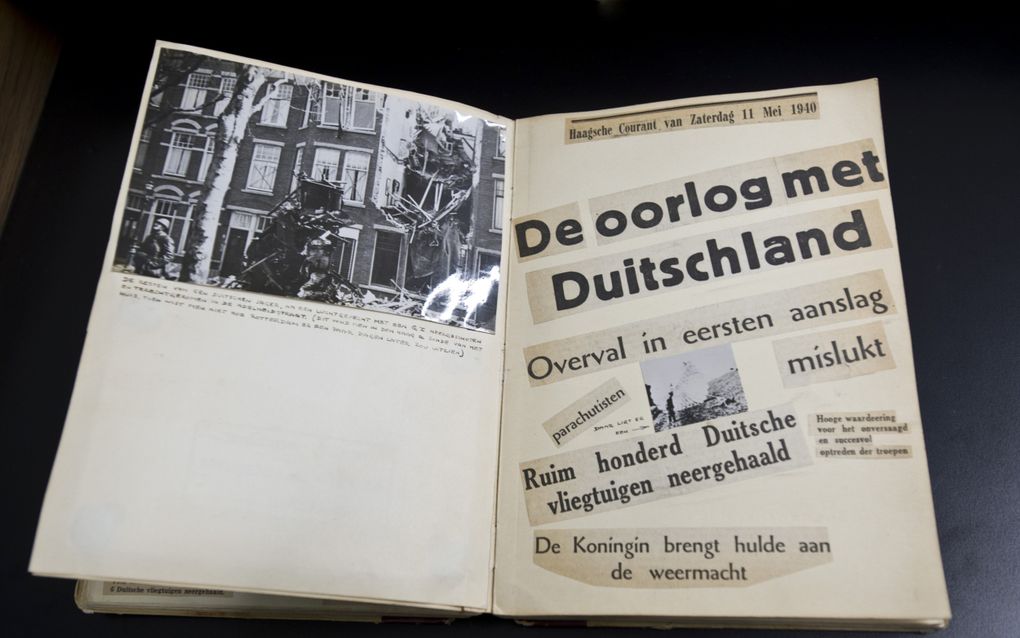 DE RESTEN VAN EEN DUITSCHEN JAGER, NA EEN LUCHTGEVECHT MET EEN G 1 NEERGESCHOTEN
EN TERECHTGEKOMEN IN DE ADELHEIDSTRAAT. (DIT VOND MEN IN DEN HAAG 'N SCHADE VAN HET
HUIS. TOEN WIST MEN NIET HOE ROTTERDAM ER EEN PAAR DAGEN LATER ZOU UITZIEN)
6 Duitsche vliegtuigen neergehaald.
Haagsche Courant van Zaterdag 11 Mei 1940
De oorlog met
Duitschland
Overval in eersten aanslag
mislukt
parachutisten
DAAR LIGT ER
EEN
Hooge waardeering
voor het onversaagd
en succesvol
optreden der troepen
Ruim honderd Duitsche
vliegtuigen neergehaald
De Koningin brengt hulde aan
de weermacht